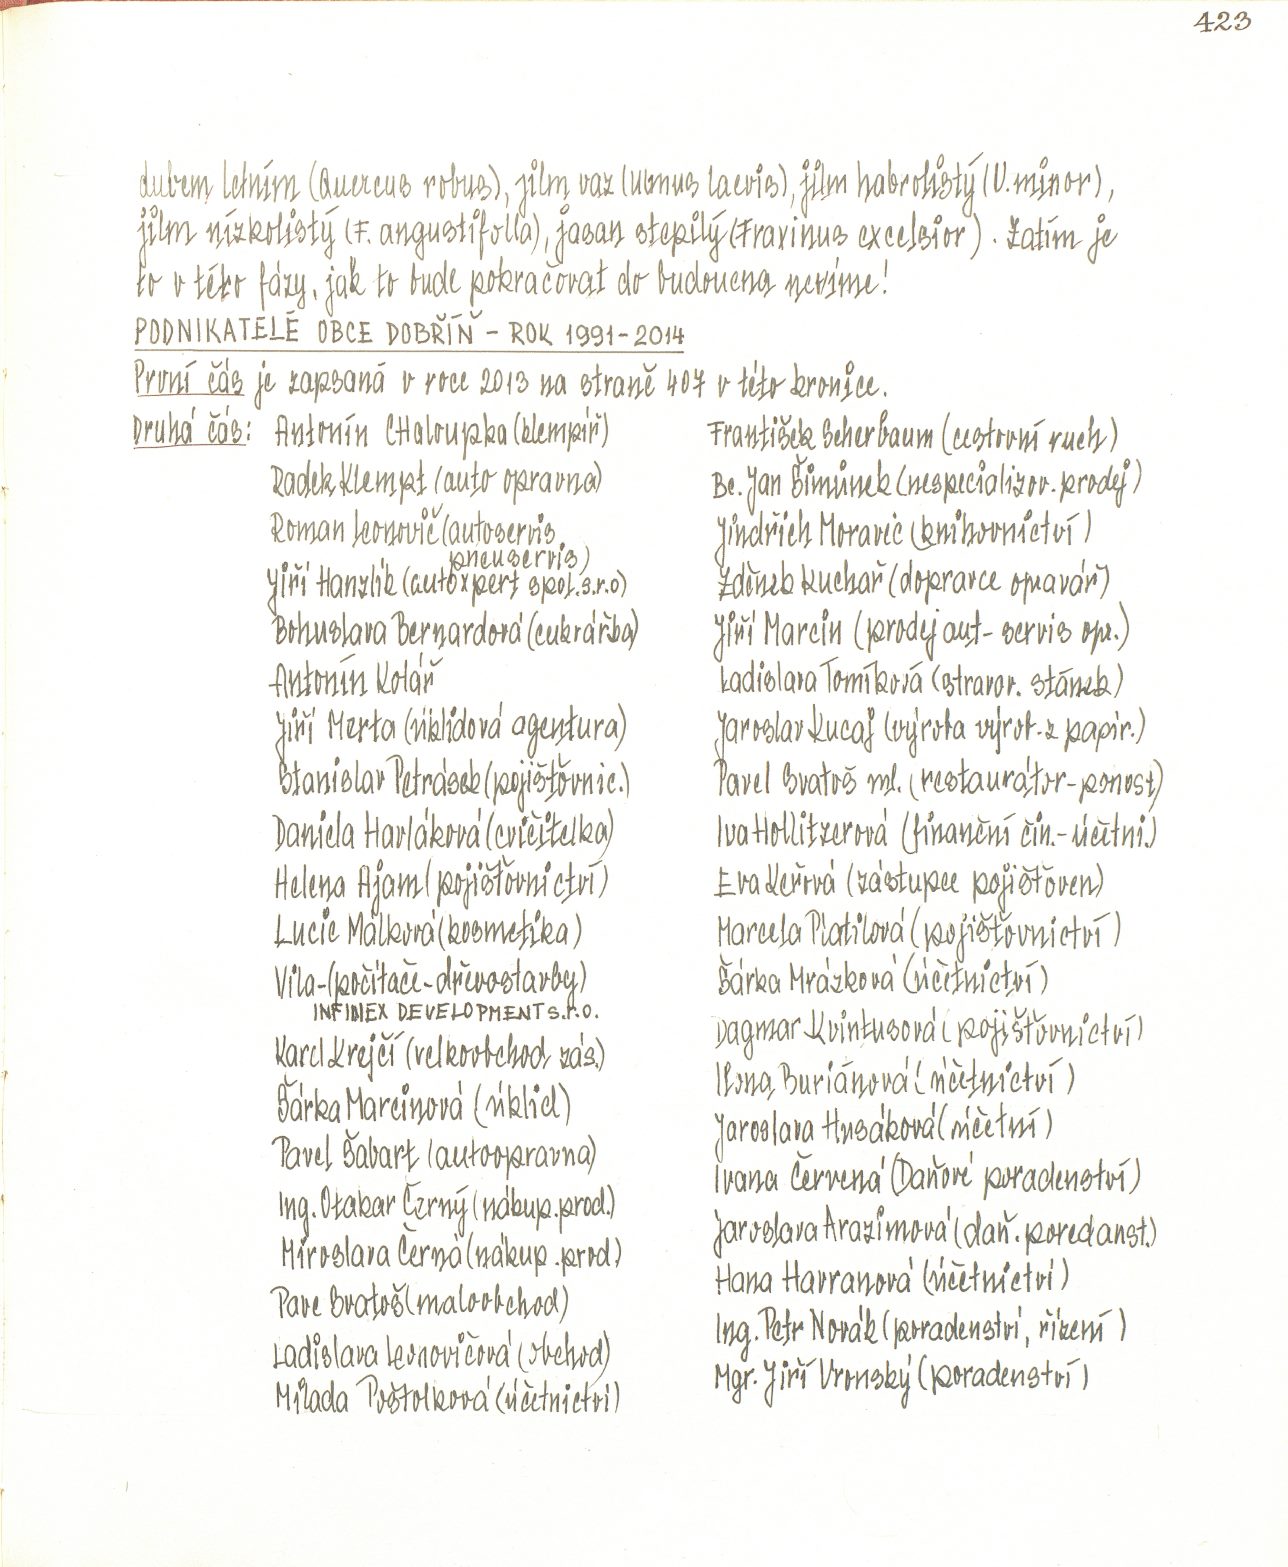 423
dubem letním (Quercus robus), jilm vaz (Ulmus laevis), jilm habrolistý (U. minor),
jilm nízkolistý (F. angustifolla), jasan stepilý (Fraxinus excelsior). Zatím je
to v této fázy, jak to bude pokračovat do budoucna nevíme!
PODNIKATELÉ OBCE DOBŘÍŇ - ROK 1991-2014
První čás je zapsaná v roce 2013 na straně 407 v této kronice.
Druhá čás: Antonín CHaloupka (klempíř)
Radek Klempt (auto opravna)
Roman Leonovič (autoservis
pneuservis)
Jiří Hanzlík (autoxpert spol. s.r.o)
Bohuslava Bernardová (cukrářka)
Antonín Kolář
Jiří Merta (úklidová agentura)
Stanislav Petrásek (pojišťovnic.)
Daniela Havláková (cvičitelka)
Helena Ajam (pojišťovnictví)
Lucie Málková (kosmetika)
Vila-(počítače-dřevostavby)
INFINEX DEVELOPMENT s.r.o.
Karel Krejčí (velkoobchod zás.)
Šárka Marcinová (úklid)
Pavel Šabart (autoopravna)
Ing. Otakar Černý (nákup. prod.)
Miroslava Černá (nákup. prod)
Pave Svatoš (maloobchod)
Ladislava Leonovičová (obchod)
Milada Poštolková (účetnictví)
František Scherbaum (cestovní ruch)
Bc. Jan Šimůnek (nespecializov. prodej)
Jindřich Moravic (knihovnictví)
Zděnek Kuchař (dopravce opravář)
Jiří Marcin (prodej aut- servis opr.)
Ladislava Tomíková (stravov. stánek)
Jaroslav Kucaj (výroba výrob. z papír.)
Pavel Svatoš ml. (restaurátor-ponost)
Iva Hollitzerová (finanční čin.-účetní.)
Eva Keřová (zástupce pojišťoven)
Marcela Platilová (pojišťovnictví)
Šárka Mrázková (účetnictví)
Dagmar Kvintusová (pojišťovnictví)
Ilona Buriánová (účetnictví)
Jaroslava Husáková (účetní)
Ivana Červená (Daňové poradenství)
Jaroslava Arazimová (daň. poredanst.)
Hana Havranová (účetnictví)
Ing. Petr Novák (poradenství, řízení)
Mgr. Jiří Vronský (poradenství)